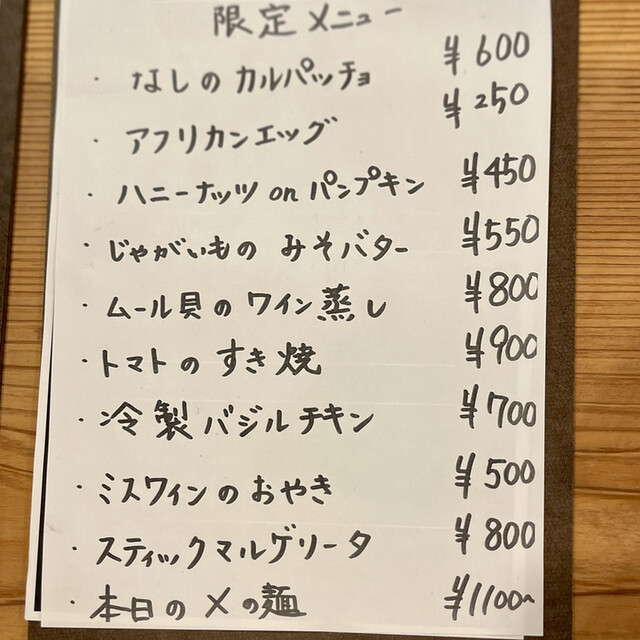 限定メニュー
・なしのカルパッチョ ¥600
・アフリカンエッグ ¥250
・ハニーナッツonパンプキン ¥450
・じゃがいもの みそバター ¥550
・ムール貝のワイン蒸し ¥800
・トマトのすき焼 ¥900
・冷製バジルチキン ¥700
・ミスワインのおやき ¥500
・スティックマルゲリータ ¥800
・本日の〆の麺 ¥1100〜